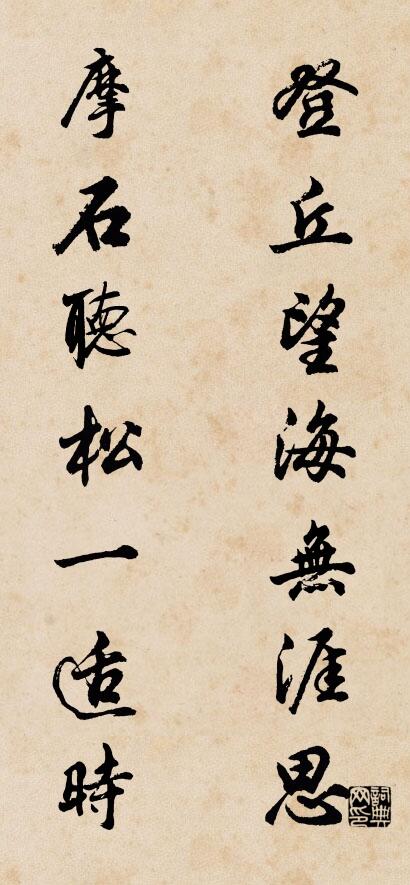 登丘望海無涯思
摩石聽松一适時
詞典网印